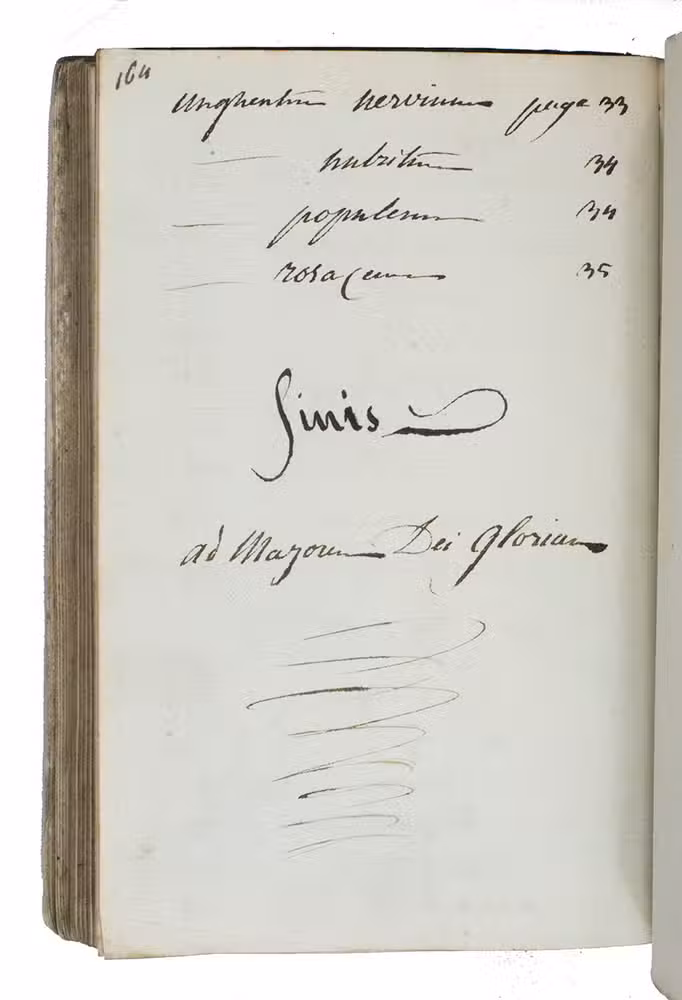 164
Unghentum nervinum page 33
— nutritum 34
— populeum 34
— rosaceum 35
finis
ad Majorem Dei gloriam